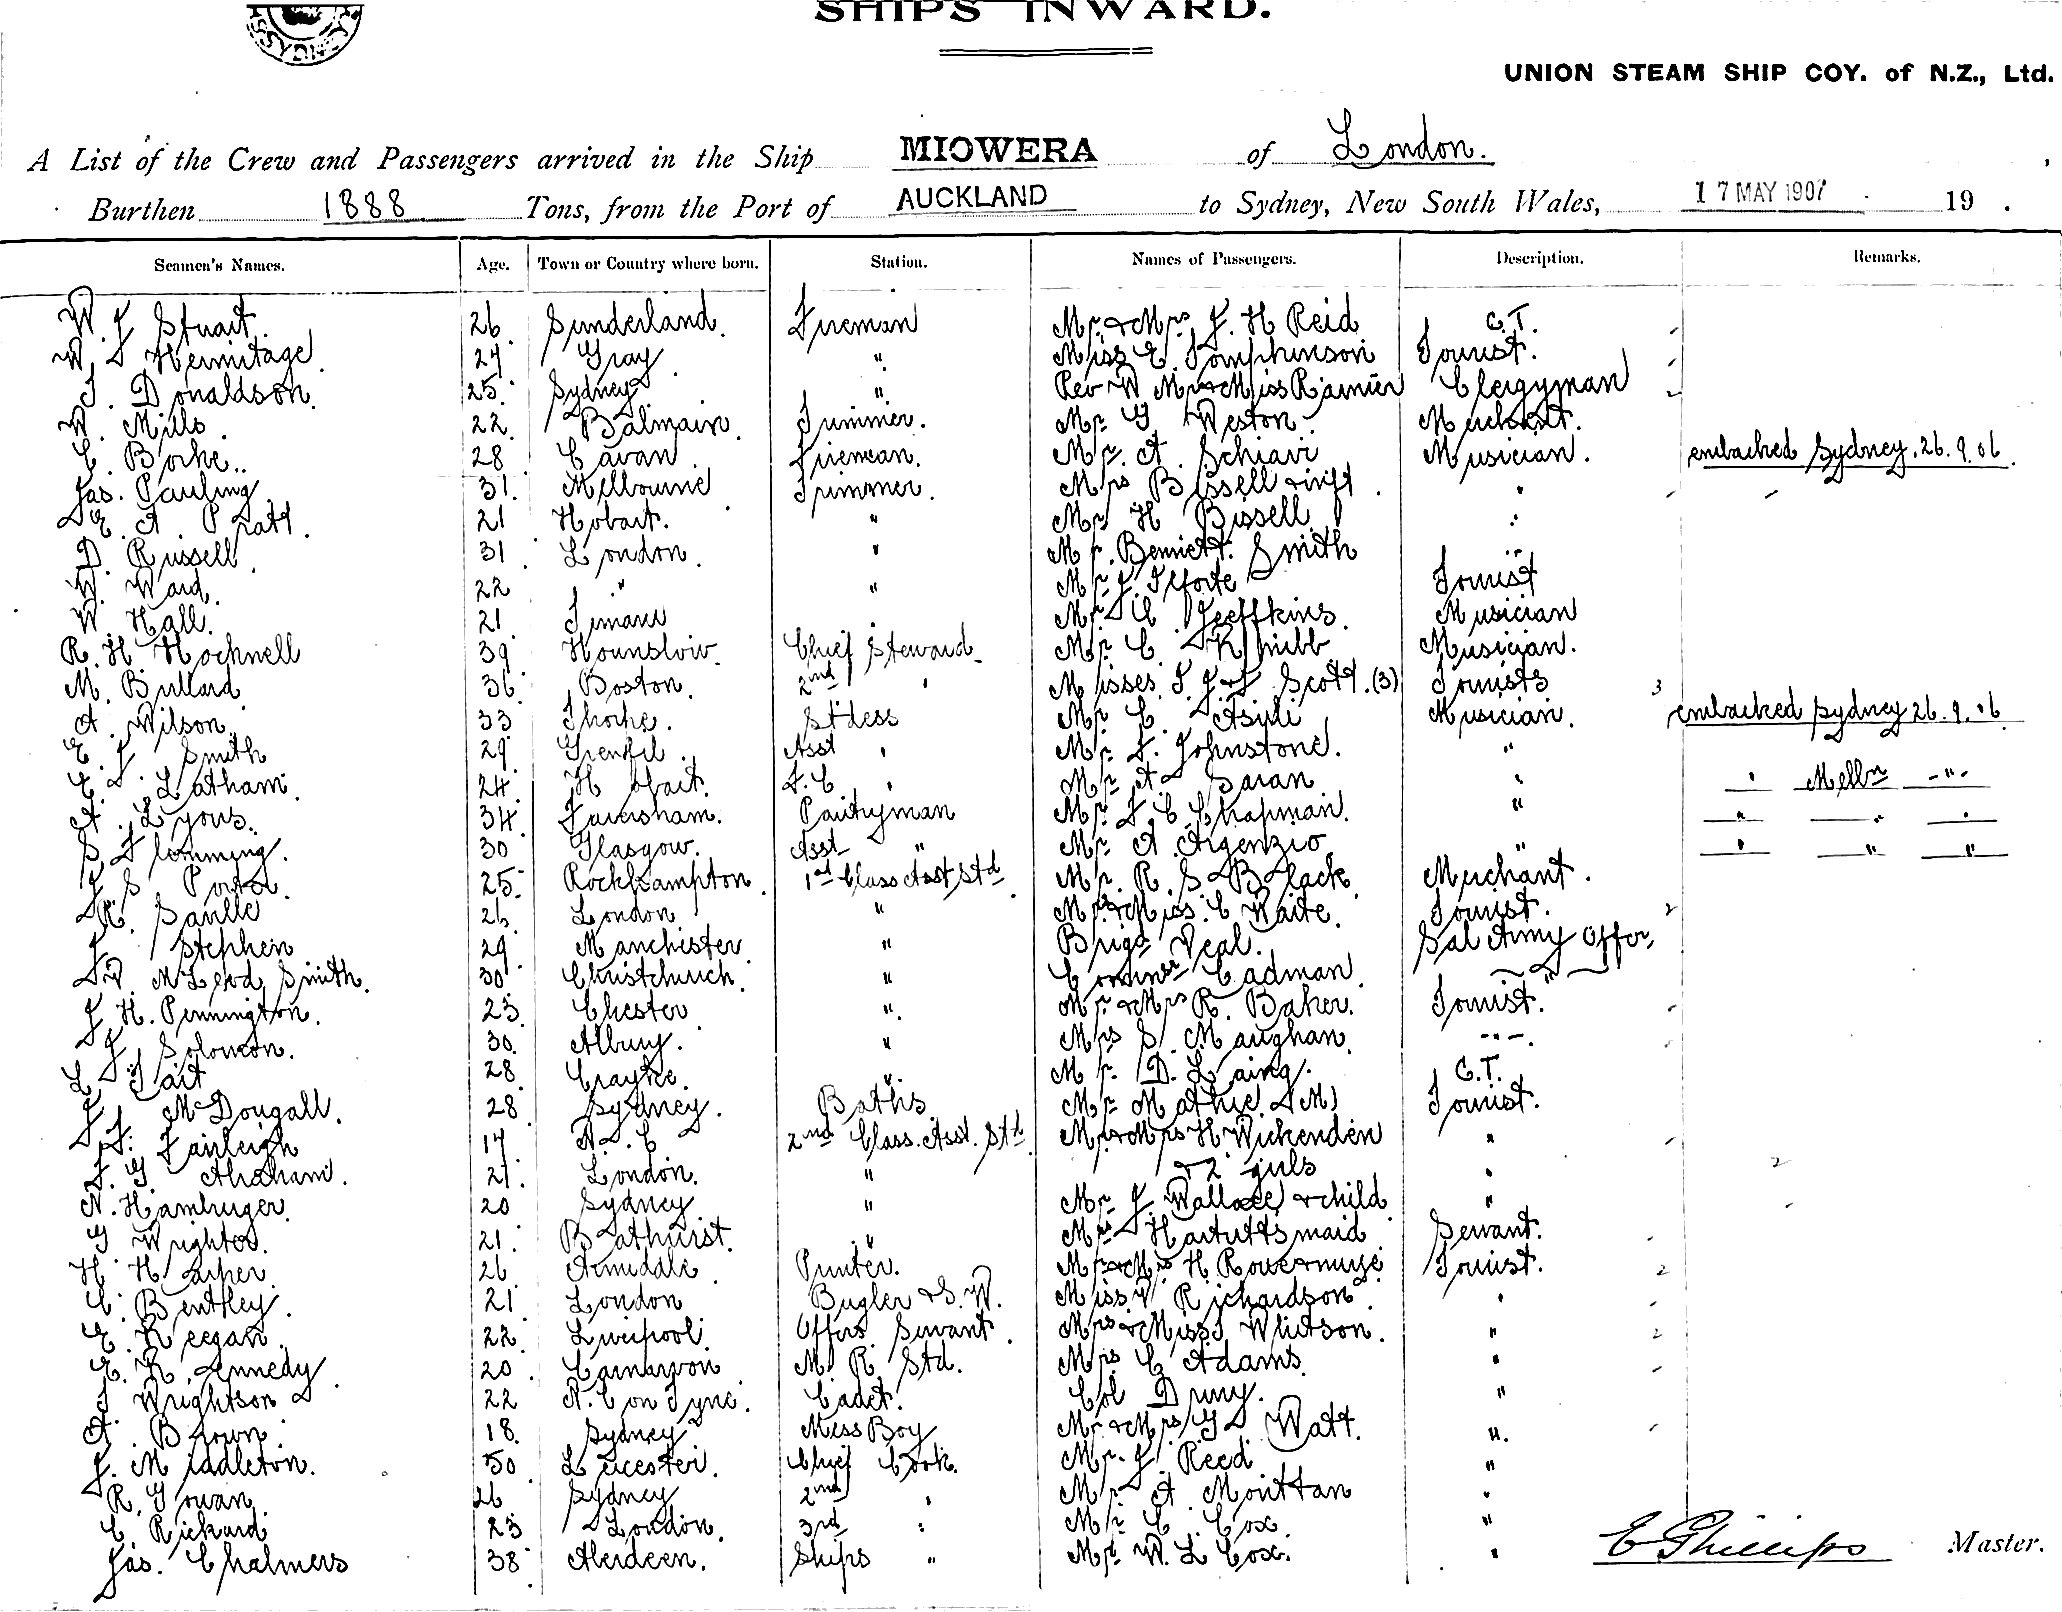 SYDNEY
SHIPS INWARD.
UNION STEAM SHIP COY. of N.Z., Ltd.
A List of the Crew and Passengers arrived in the Ship MIOWERA of London.
Burthen 1888 Tons, from the Port of AUCKLAND to Sydney, New South Wales, 17 MAY 1907 19 .
Seamen's Names. Age. Town or Country where born. Station. Names of Passengers. Description. Remarks.
W. J Stuart. 26 Sunderland. Fireman Mr. & Mrs J. H Reid C.T.
W. J Hermitage. 24 Gray " Miss E. Tomphinson Tourist.
J. Donaldson. 25. Sydney " Rev W Mr & Miss Clergyman
W. Mills. 22. Balmain. Trimmer. Mr. G Weston. Merchant.
C. Borke.. 28 Cavan Fireman. Mr. A Schiavi Musician. embarked Sydney. 26.9.06.
Jas. Pauling 31. Melbourne Trimmer. Mrs Bissell & inft. "
E. A. Pratt. 21 Hobart. " Mr H Bissell "
D. Russell. 31 London. " Mr. Bennett. Smith "
W. Ward. 22 " " Mr. J. Tourist
W. Hall. 21 Timaru Mr. C Jeffkins. Musician
R. H. Hocknell 39 Hounslow. Chief Steward. Mr. C. Knibb Musician.
M. Bullard 36. Boston. 2nd " Misses. J. J & J Scott. (3) Tourists 3
A. Wilson. 33 Thorke. St'dess Mr. C. Asioli Musician. embarked Sydney 26.9.06
E. J. Smith 29 Grenfel. Asst " Mr. J. Johnstone. "
C. J. Latham. 24 Hobart. F.C " Mr. A Saran " " Melbn -"-
A. Lyons. 34 Faversham. Pantryman Mr. F C Chapman. " " " "
S. Flemming. 30 Glasgow. Asst " Mr. A Argenzio " " " "
J. S Porter. 25. Rockhampton. 1st Class Asst. Std. Mr. R. S Black. Merchant.
R. Saulle 26. London " Mrs & Miss. C Waite. Tourist. 2
J Stephen 29 Manchester " Brigd Veal. Sal Army Offer,
D. McLeod Smith. 30 Christchurch. " Commr Cadman. "
J. H. Pennington. 23. Chester ". Mr. & Mrs R. Baker. Tourist.
J. Solomon. 30. Albury. " Mrs S. Maughan. -"-.
L. Tait 28 Crayke. " Mr. D. Laing. C.T.
J. McDougall. 28 Sydney. Baths Mr Mathie (M) Tourist.
J. Fairleigh 17 N.S.C 2nd Class. Asst. Std. Mr & Mrs H. Wickenden "
J. G. Abraham. 21. London. " & 2 girls " 2
N. Hamburger. 20 Sydney " Mr J. Wallace & child "
G Wrighter. 21. Bathurst. " Mrs Hartutts maid Servant.
H. Harper. 26 Armidale. Printer. Mr & Mrs H Tourist. 2
C. Bentley. 21 London Bugler & S.W. Miss V Richardson "
E. Keegan. 22. Liverpool. Offers Servant. Mrs & Miss J Whitson. " 2
E. Kennedy. 20 Carnarvon M. R. Std. Mrs C Adams. "
J. Wrightson 22 N.C on Tyne. Cadet. Col Drury. "
A. Brown. 18. Sydney Mess Boy Mr & Mrs G Watt. "
J. Middleton. 50 Leicester. Chief Cook. Mr. J. Reed "
R. Gowan. 26 Sydney 2nd " Mr. A Morittan "
C. Rickard 23 London. 3rd " Mr. C. Cox. "
Jas. Chalmers 38 Aberdeen. Ships " Mr. W. L Cox. " C Phillips Master.